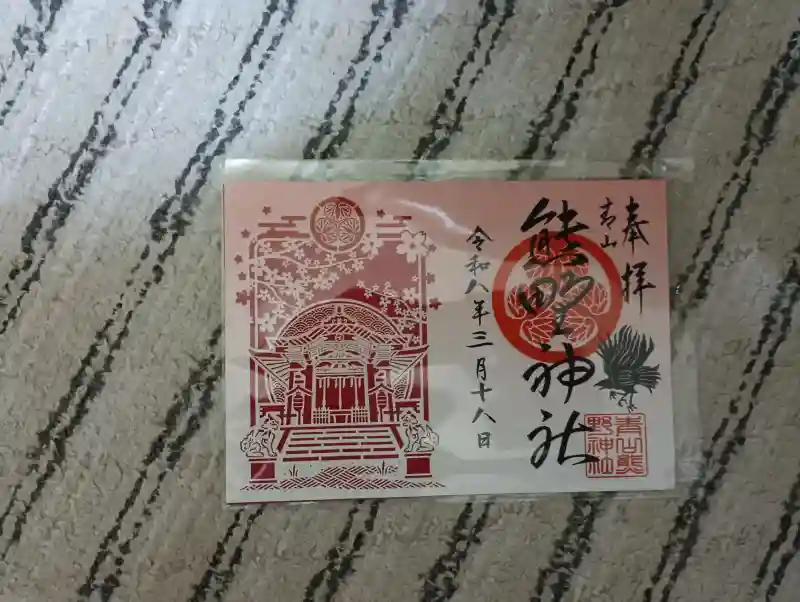 奉拝
青山
熊野神社
令和八年三月十八日
青山熊野神社